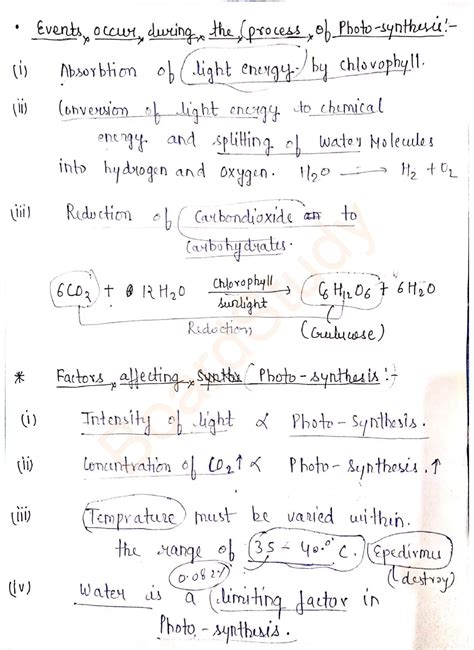 • Events occur during the process of Photo-synthesis:-
(i) Absorbtion of light energy by chlorophyll.
(ii) Conversion of light energy to chemical
energy and splitting of water Molecules
into hydrogen and oxygen. H2O → H2 + O2
(iii) Reduction of Carbondioxide to
Carbohydrates.
6CO2 + 12H2O Chlorophyll → sunlight C6H12O6 + 6H2O
Reduction (Gulucose)
* Factors affecting Photo-synthesis:-
(i) Intensity of light ∝ Photo-Synthesis.
(ii) Concentration of CO2↑ ∝ Photo-Synthesis.↑
(iii) Temprature must be varied within
the range of 35-40.0°C.
(destroy)
(iv) Water is a limiting factor in
Photo-synthesis.
BoardStudy